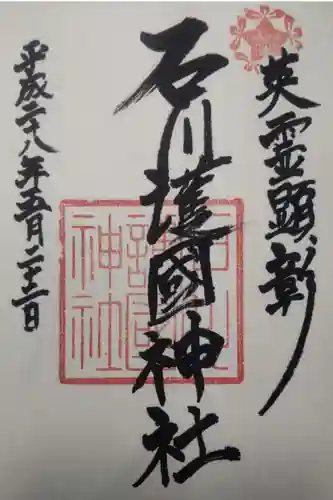 英霊顕彰
石川護國神社
石川護國神社
平成二十八年五月二十二日